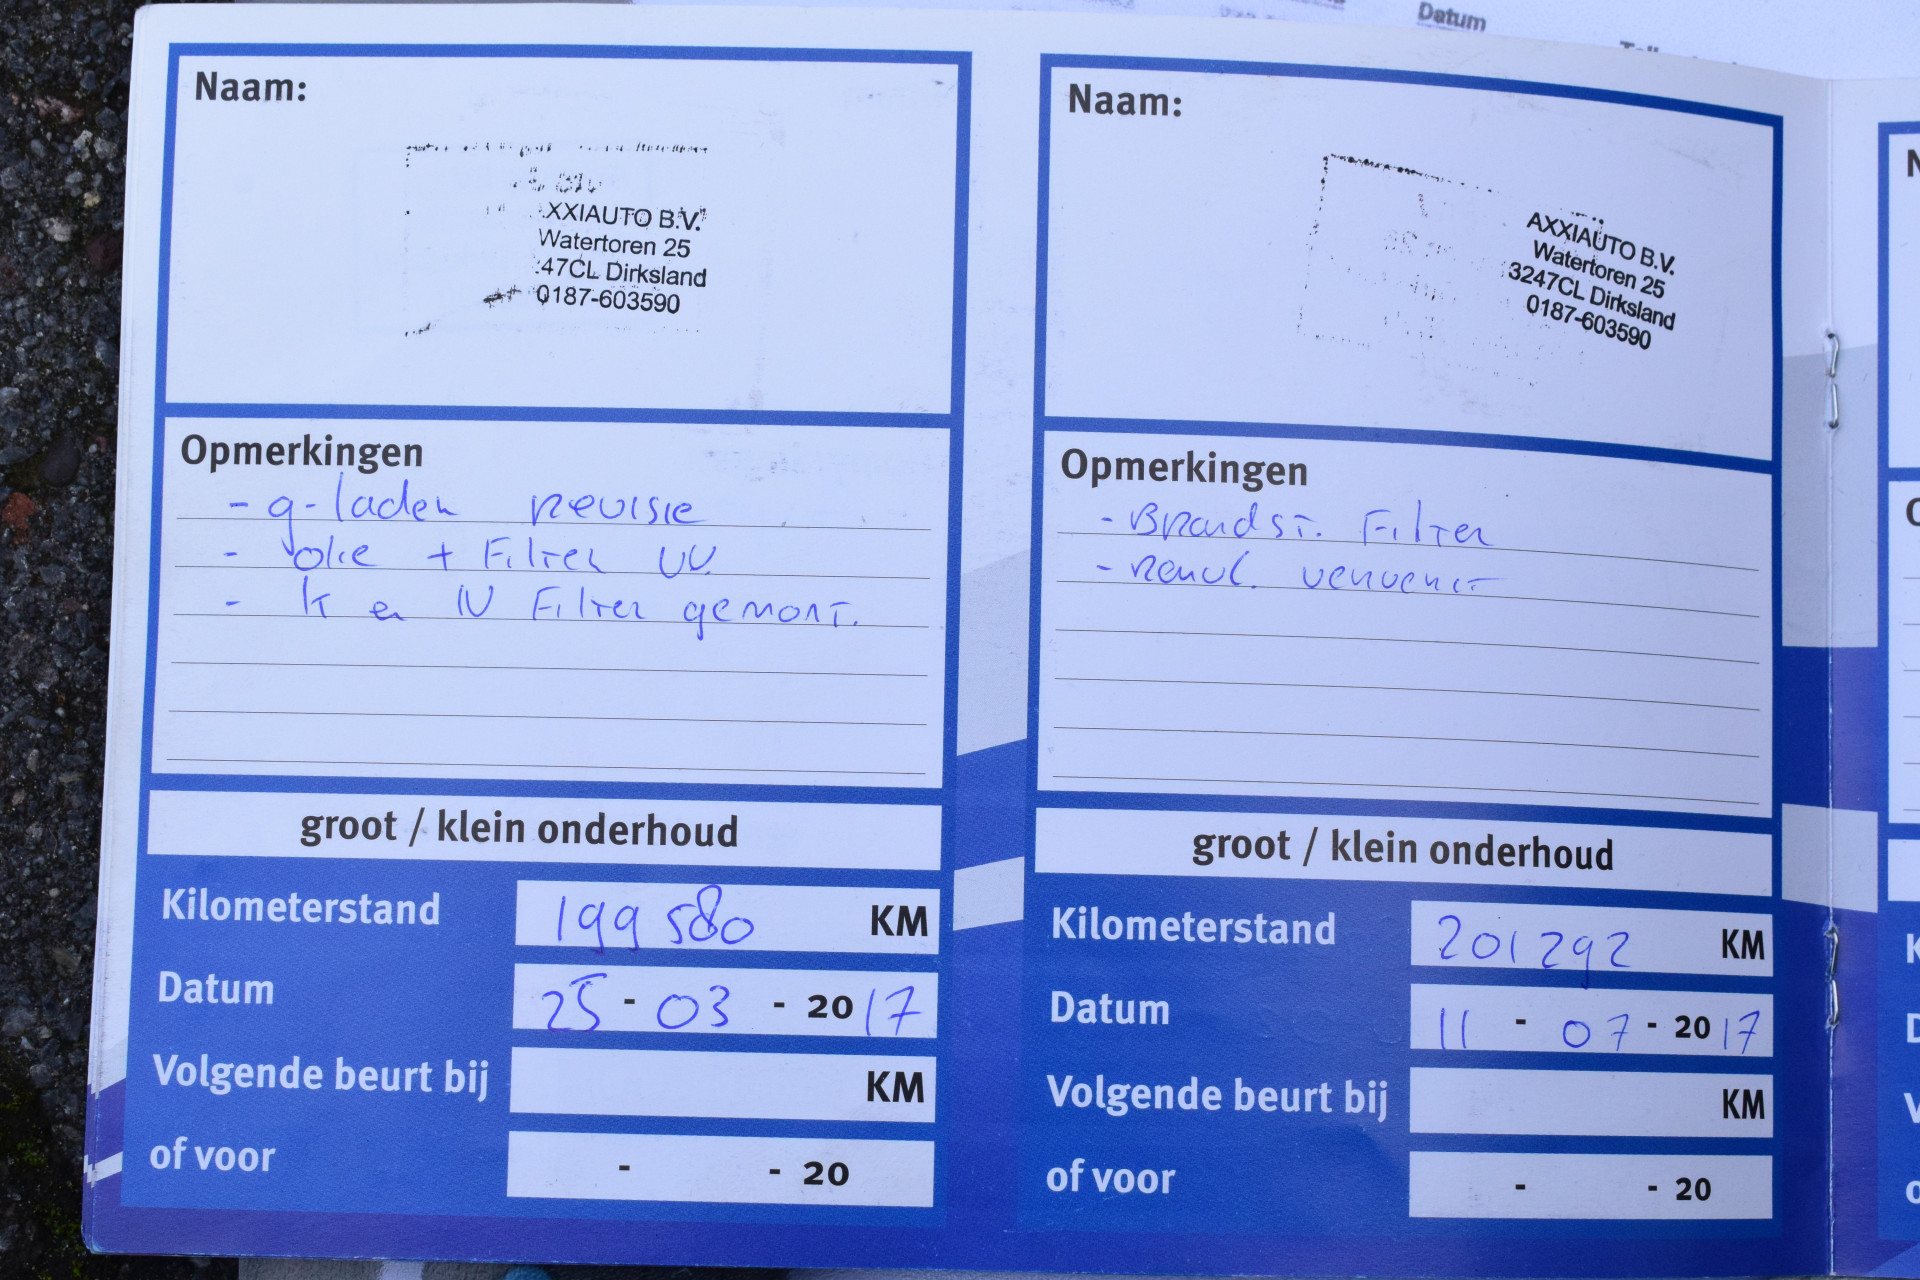 Datum
Naam:
XXIAUTO B.V.
Watertoren 25
47CL Dirksland
0187-603590
Opmerkingen
- g-laden revisie
- olie + Filter VV.
- k en IV Filter gemont.
groot / klein onderhoud
Kilometerstand 199580 KM
Datum 25 - 03 - 2017
Volgende beurt bij KM
of voor - - 20
Naam:
AXXIAUTO B.V.
Watertoren 25
3247CL Dirksland
0187-603590
Opmerkingen
- Brandst. Filter
- remvl. ververst
groot / klein onderhoud
Kilometerstand 201292 KM
Datum 11 - 07 - 2017
Volgende beurt bij KM
of voor - - 20